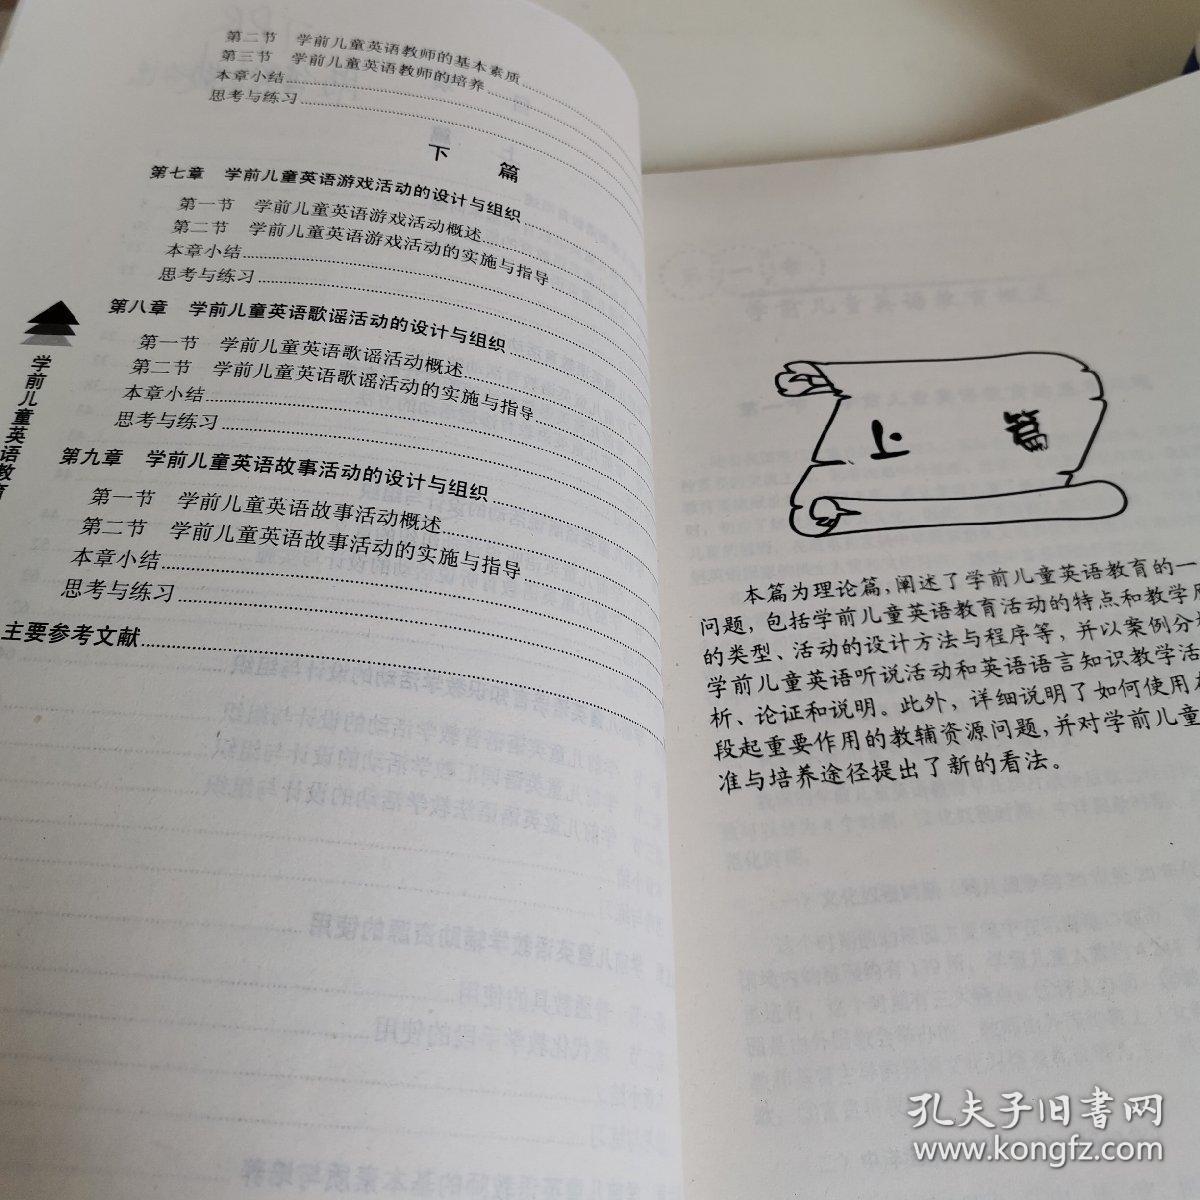 第二节 学前儿童英语教师的基本素质
第三节 学前儿童英语教师的培养
本章小结
思考与练习
下 篇
第七章 学前儿童英语游戏活动的设计与组织
第一节 学前儿童英语游戏活动概述
第二节 学前儿童英语游戏活动的实施与指导
本章小结
思考与练习
第八章 学前儿童英语歌谣活动的设计与组织
第一节 学前儿童英语歌谣活动概述
第二节 学前儿童英语歌谣活动的实施与指导
本章小结
思考与练习
第九章 学前儿童英语故事活动的设计与组织
第一节 学前儿童英语故事活动概述
第二节 学前儿童英语故事活动的实施与指导
本章小结
思考与练习
主要参考文献
学前儿童英语教育
上 篇
本篇为理论篇,阐述了学前儿童英语教育的一
问题,包括学前儿童英语教育活动的特点和教学
的类型、活动的设计方法与程序等,并以案例分
学前儿童英语听说活动和英语语言知识教学活
析、论证和说明。此外,详细说明了如何使用
段起重要作用的教辅资源问题,并对学前儿童
准与培养途径提出了新的看法。
孔夫子旧书网
www.kongfz.com